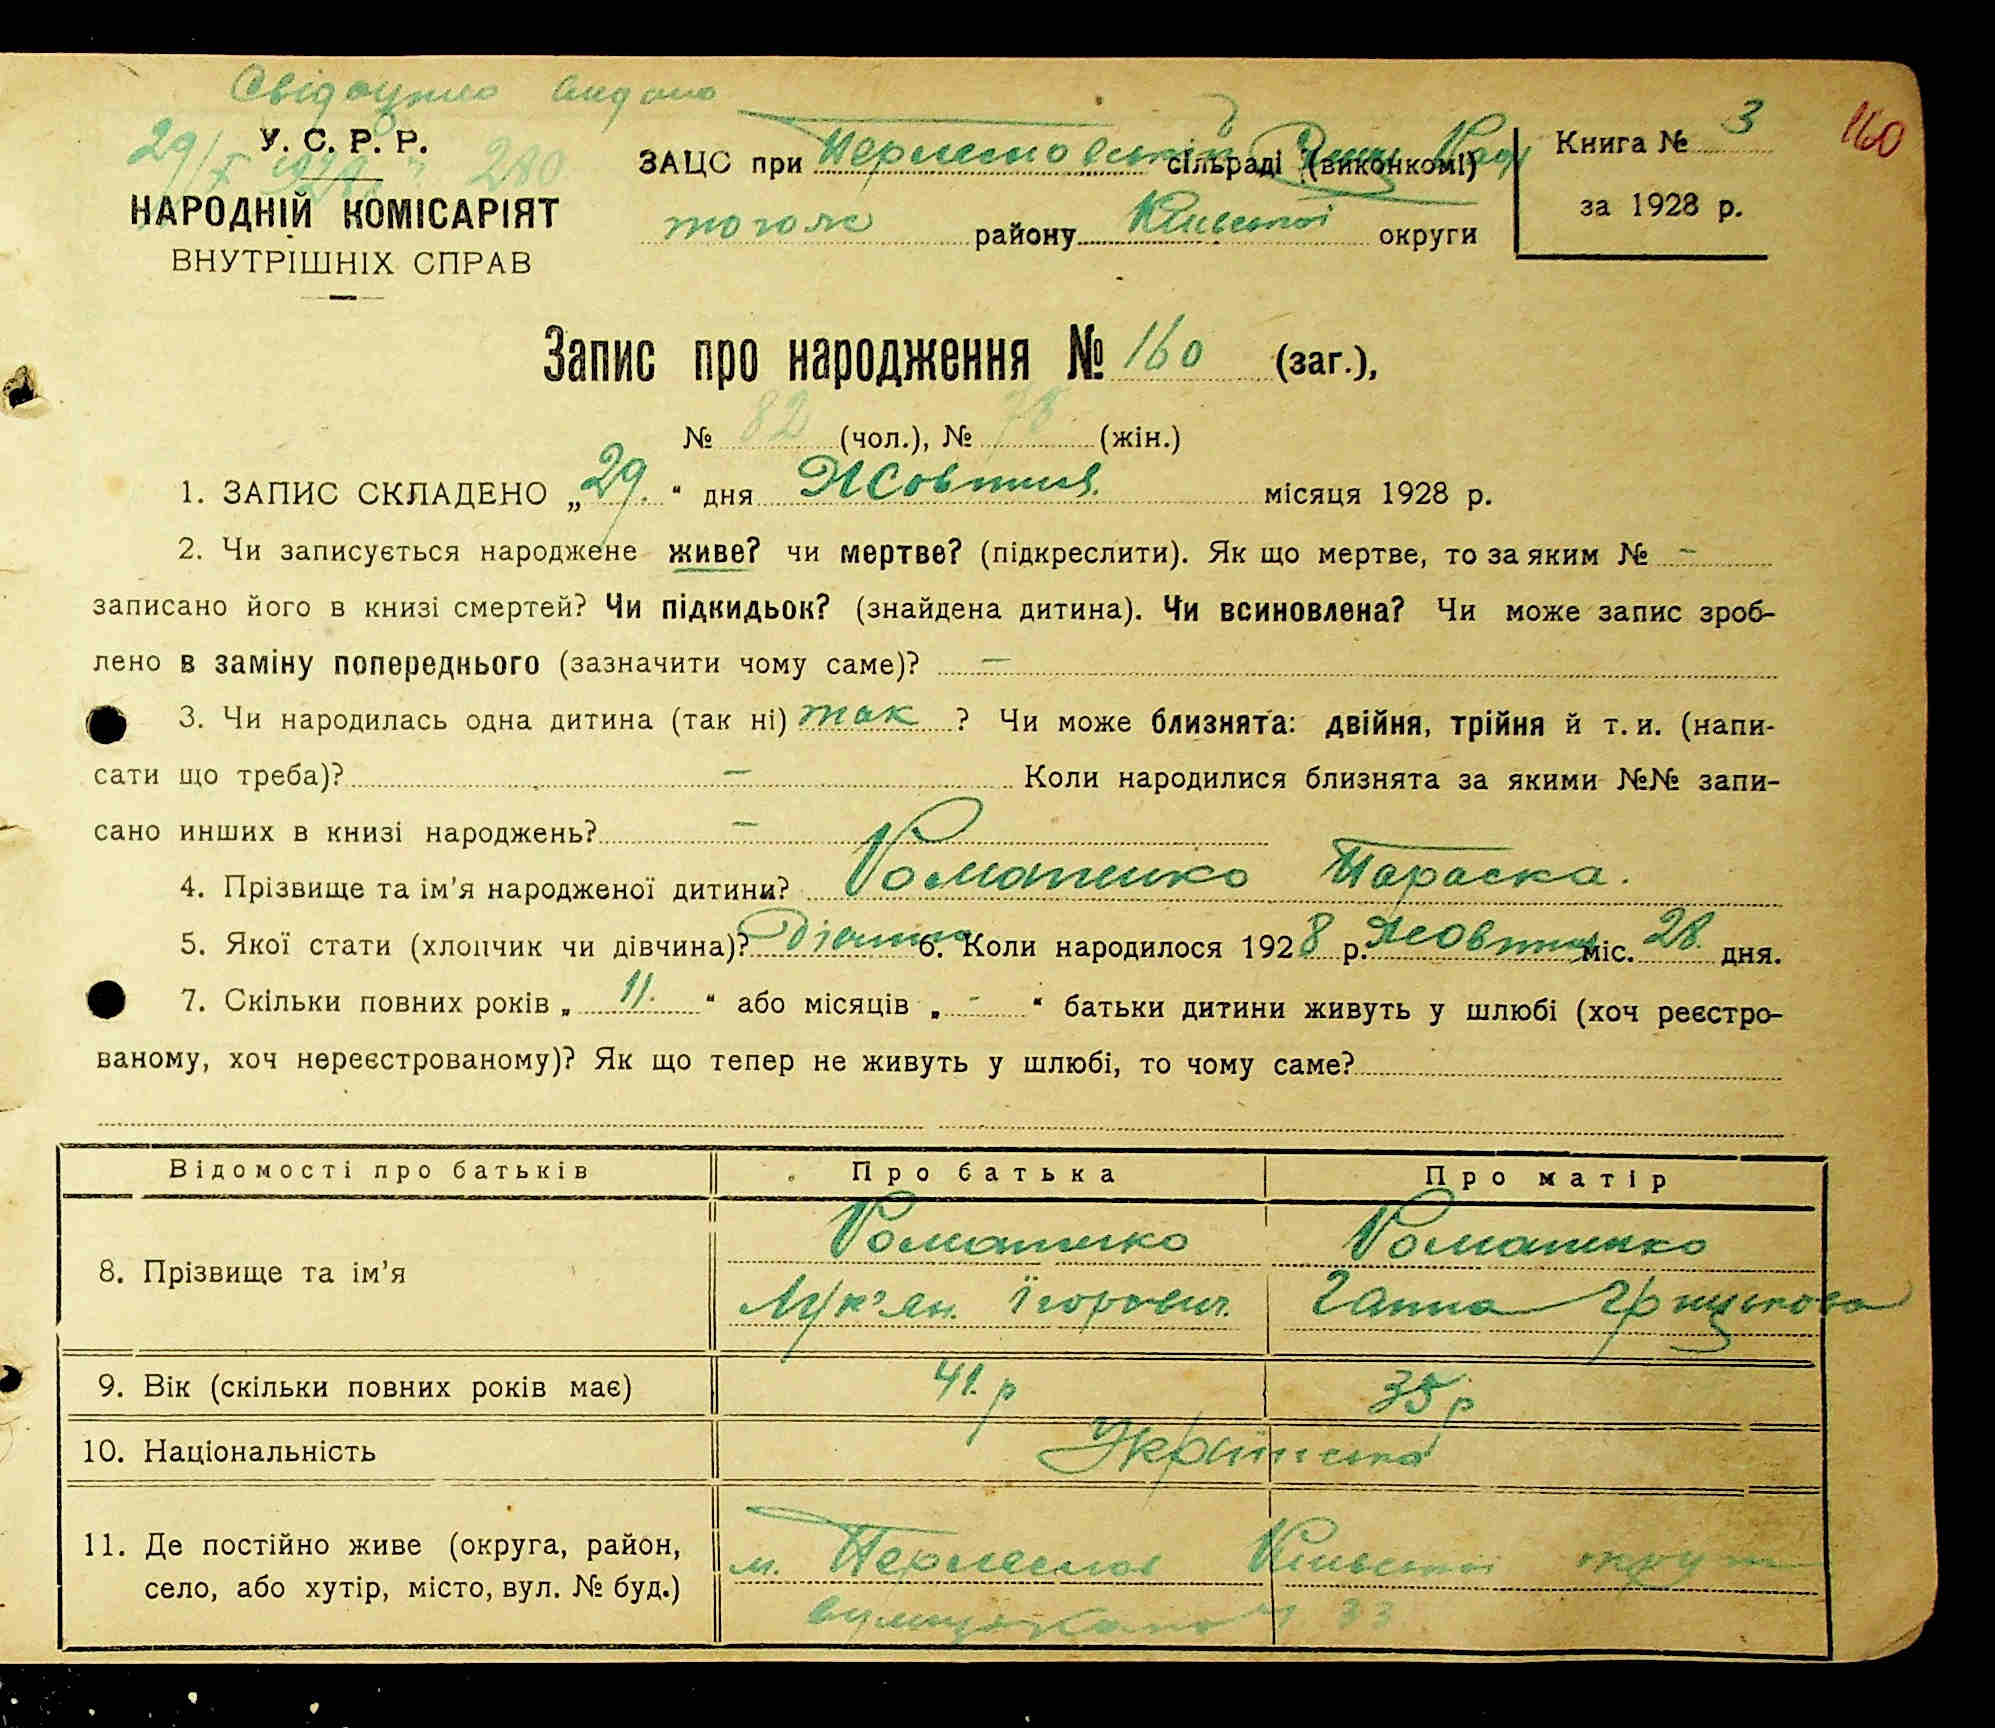 Свідоцтво видано
29/X 1928 р. 280
У. С. Р. Р.
НАРОДНІЙ КОМІСАРІЯТ
ВНУТРІШНІХ СПРАВ
ЗАЦС при сільраді (виконкомі)
того ж району Київської округи
Книга № 3
за 1928 р.
160
Запис про народження № 160 (заг.),
№ 82 (чол.), № 78 (жін.)
1. ЗАПИС СКЛАДЕНО „ 29. “ дня Жовтня. місяця 1928 р.
2. Чи записується народжене живе? чи мертве? (підкреслити). Як що мертве, то за яким № –
записано його в книзі смертей? Чи підкидьок? (знайдена дитина). Чи всиновлена? Чи може запис зроб-
лено в заміну попереднього (зазначити чому саме)? –
3. Чи народилась одна дитина (так ні) так ? Чи може близнята: двійня, трійня й т. и. (напи-
сати що треба)? – Коли народилися близнята за якими №№ запи-
сано инших в книзі народжень? –
4. Прізвище та ім’я народженої дитини? Романенко Параска.
5. Якої стати (хлопчик чи дівчина)? 6. Коли народилося 1928 р. Жовтня міс. 28. дня.
7. Скільки повних років „ 11. “ або місяців „ - “ батьки дитини живуть у шлюбі (хоч реєстро-
ваному, хоч нереєстрованому)? Як що тепер не живуть у шлюбі, то чому саме?
Відомості про батьків Про батька Про матір
8. Прізвище та ім’я Романенко Романенко
Лук’ян. Ігорович. Ганна Грицькова
9. Вік (скільки повних років має) 41. р 35 р
10. Національність Українська
11. Де постійно живе (округа, район, м. Київської округи
село, або хутір, місто, вул. № буд.) 33